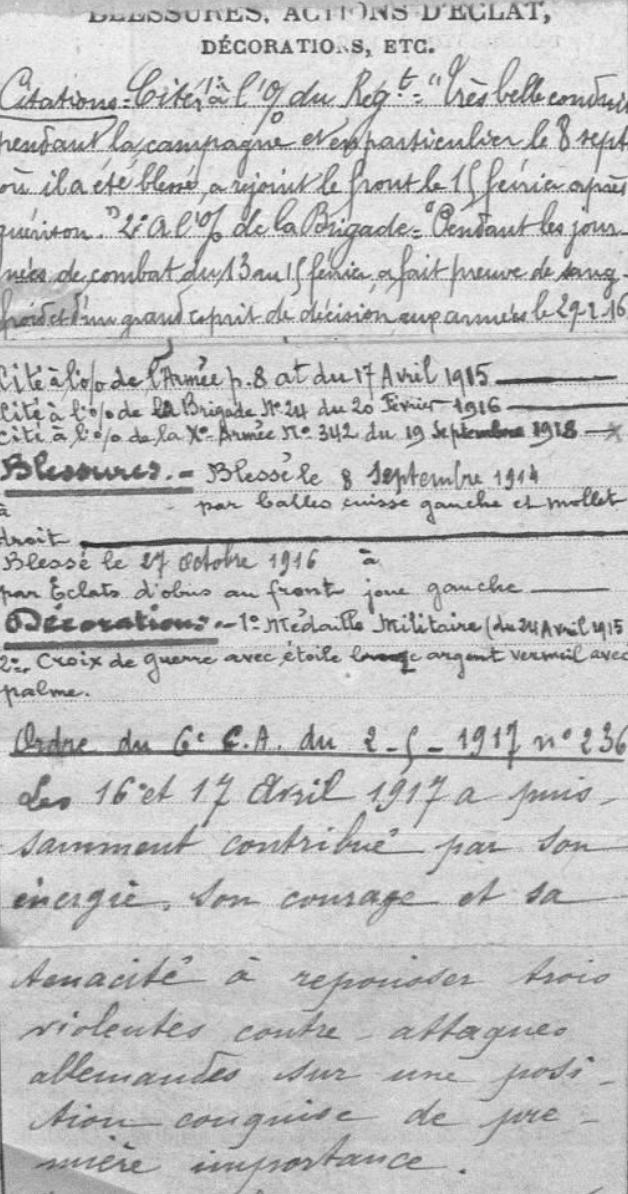 BLESSURES, ACTIONS D'ÉCLAT,
DÉCORATIONS, ETC.
Citations = Cité 1° à l'o/o du Régt = "Très belle conduite
pendant la campagne et en particulier le 8 sept
où il a été blessé, a rejoint le front le 15 février après
guérison." 2° A l'o/o de la Brigade = "Pendant les jour-
nées de combat du 13 au 15 février, a fait preuve de sang-
froid et d'un grand esprit de décision, aux armées le 29-2-16
Cité à l'o/o de l'Armée p. 8 at du 17 Avril 1915
Cité à l'o/o de la Brigade N° 24 du 20 Février 1916
Cité à l'o/o de la Xe Armée N° 342 du 19 Septembre 1918
Blessures.- Blessé le 8 Septembre 1914
à par balles cuisse gauche et mollet
droit
Blessé le 27 Octobre 1916 à
par Éclats d'obus au front joue gauche
Décorations.- 1° Médaille Militaire (du 24 Avril 1915
2°. Croix de guerre avec étoile argent vermeil avec
palme.
Ordre du 6e C.A. du 2-5-1917 n° 236
Les 16 et 17 Avril 1917 a puis-
samment contribué par son
énergie, son courage et sa
tenacité à repousser trois
violentes contre-attaques
allemandes sur une posi-
tion conquise de pre-
mière importance.